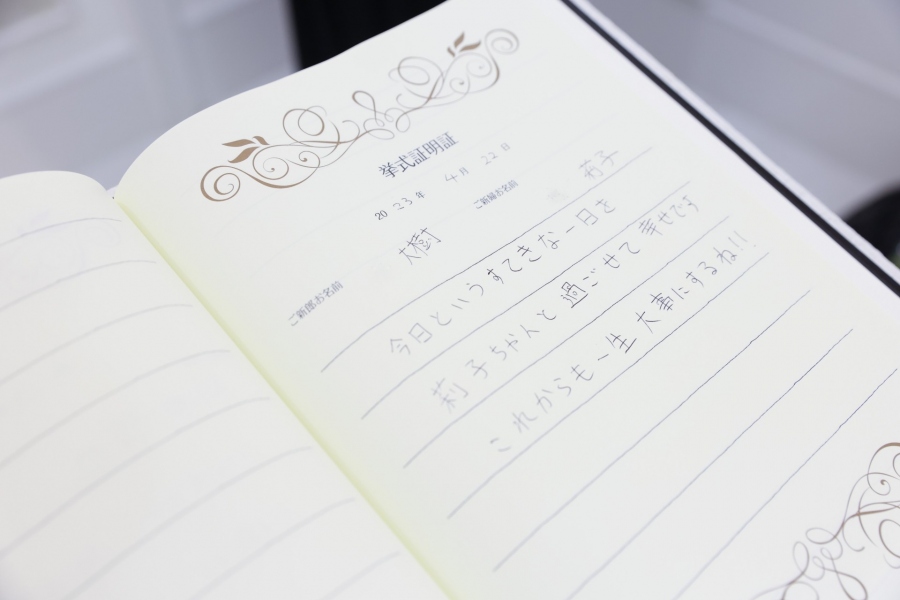 挙式証明証
2023年 4月 22日
ご新郎お名前 大樹 ご新婦お名前 莉子
今日というすてきな一日を
莉子ちゃんと過ごせて幸せです
これからも一生大事にするね!!